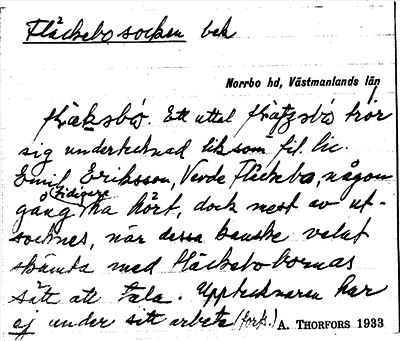 Fläckebo socken bek
Norrbo hd, Västmanlands län
fläksbo. Ett uttal flätsbo tror
sig undertecknad liksom fil. lic.
Emil Eriksson, Verde Fläckebo, någon
gång tidigare ha hört, dock mest av ut-
socknes, när dessa kanske velat
skämta med fläckebobornas
sätt att tala. Upptecknaren har
ej under sitt arbete (forts.) A. THORFORS 1933